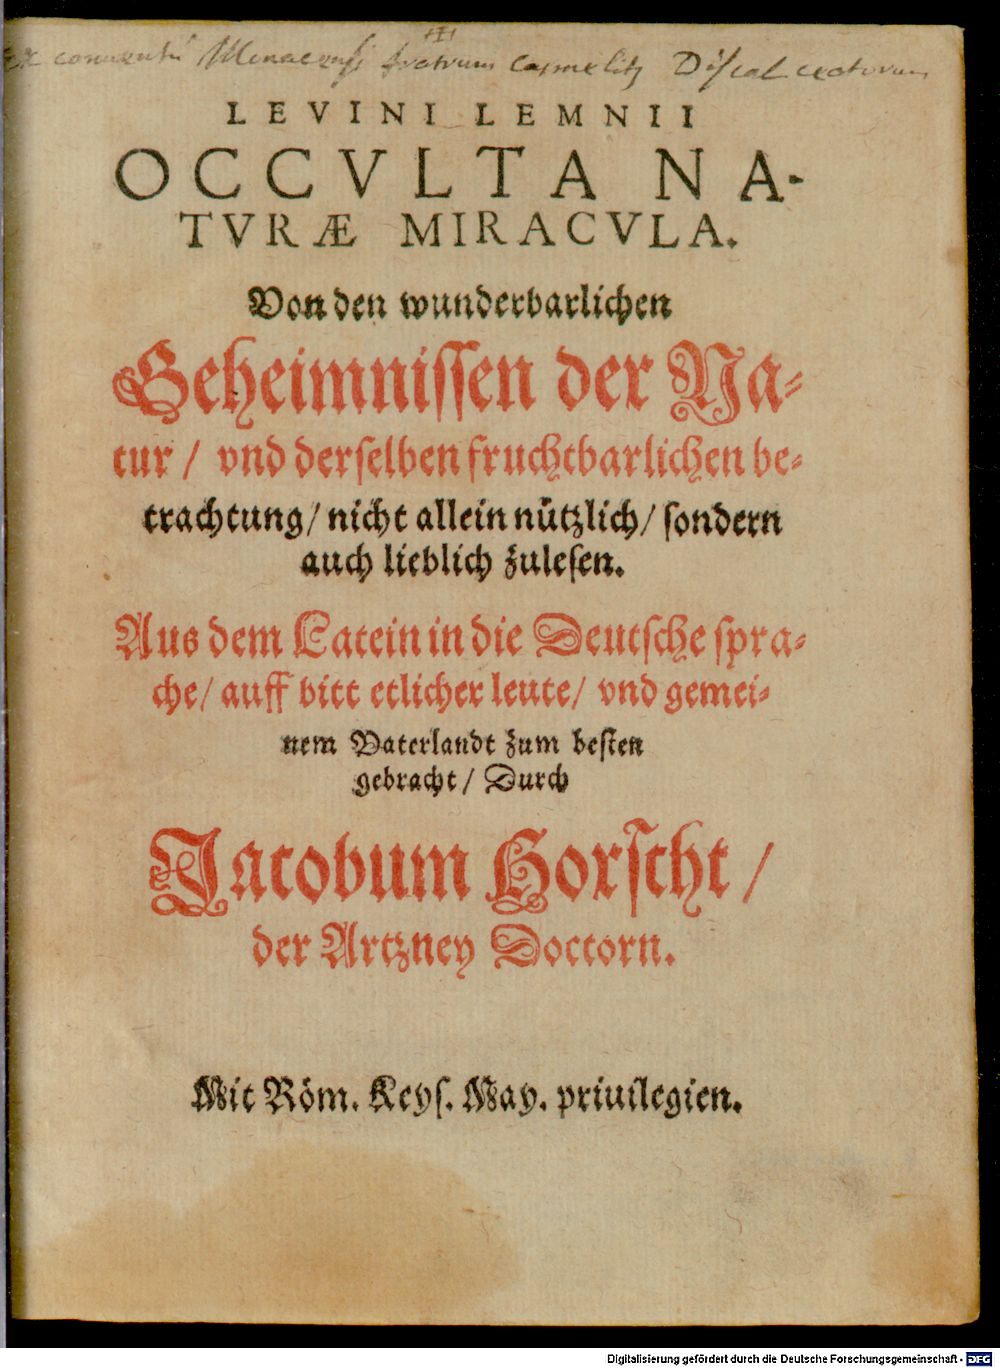 Ex conuentu Monacensi fratrum Carmelit; Discalceatorum
LEVINI LEMNII
OCCVLTA NA-
TVRÆ MIRACVLA.
Von den wunderbarlichen
Geheimnissen der Na-
tur / vnd derselben fruchtbarlichen be-
trachtung / nicht allein nützlich / sondern
auch lieblich zulesen.
Aus dem Latein in die Deutsche spra-
che / auff bitt etlicher leute / vnd gemei-
nem Vaterlandt zum besten
gebracht / Durch
Jacobum Horscht /
der Artzney Doctorn.
Mit Röm. Keys. May. priuilegien.
Digitalisierung gefördert durch die Deutsche Forschungsgemeinschaft - DFG